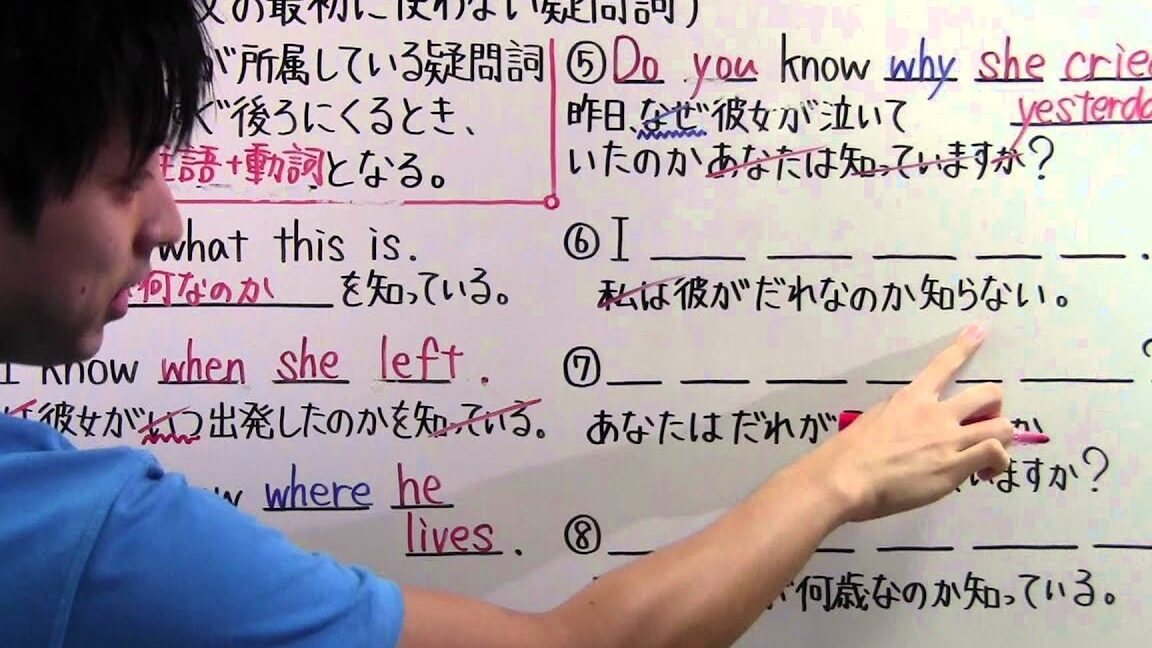 の最初に使わない疑問詞)
が所属している疑問詞
後ろにくるとき、
主語+動詞となる。
what this is.
何なのか を知っている。
I know when she left.
彼女がいつ出発したのかを知っている。
where he
lives.
⑤ Do you know why she cried
yesterda
昨日、なぜ彼女が泣いて
いたのかあなたは知っていますか?
⑥ I __ __ __ __ __.
私は彼がだれなのか知らない。
⑦ __ __ __ __ __ __?
あなたはだれが か
いますか?
⑧ __ __ __ __
が何歳なのか知っている。